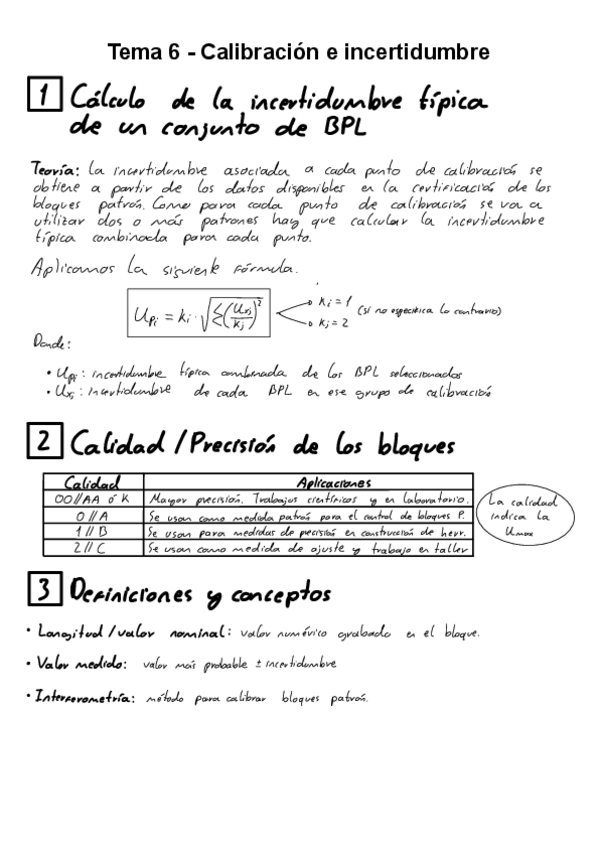 Tema 6 - Calibración e incertidumbre
1 Cálculo de la incertidumbre típica
de un conjunto de BPL
Teoría: La incertidumbre asociada a cada punto de calibración se
obtiene a partir de los datos disponibles en la certificación de los
bloques patrón. Como para cada punto de calibración se va a
utilizar dos o más patrones hay que calcular la incertidumbre
típica combinada para cada punto.
Aplicamos la siguiente fórmula.
Upi = ki · √Σ(Uxj/kj)²
ki = 1
kj = 2
(si no especifica lo contrario)
Donde:
• Upi: incertidumbre típica combinada de los BPL seleccionados
• Uxj: incertidumbre de cada BPL en ese grupo de calibración
2 Calidad / Precisión de los bloques
Calidad Aplicaciones
00//AA ó K Mayor precisión. Trabajos científicos y en laboratorio.
0//A Se usan como medida patrón para el control de bloques P.
1//B Se usan para medidas de precisión en construcción de herr.
2//C Se usan como medida de ajuste y trabajo en taller
La calidad
indica la
Umax
3 Definiciones y conceptos
• Longitud / valor nominal: valor numérico grabado en el bloque.
• Valor medido: valor más probable ± incertidumbre
• Interferometría: método para calibrar bloques patrón.